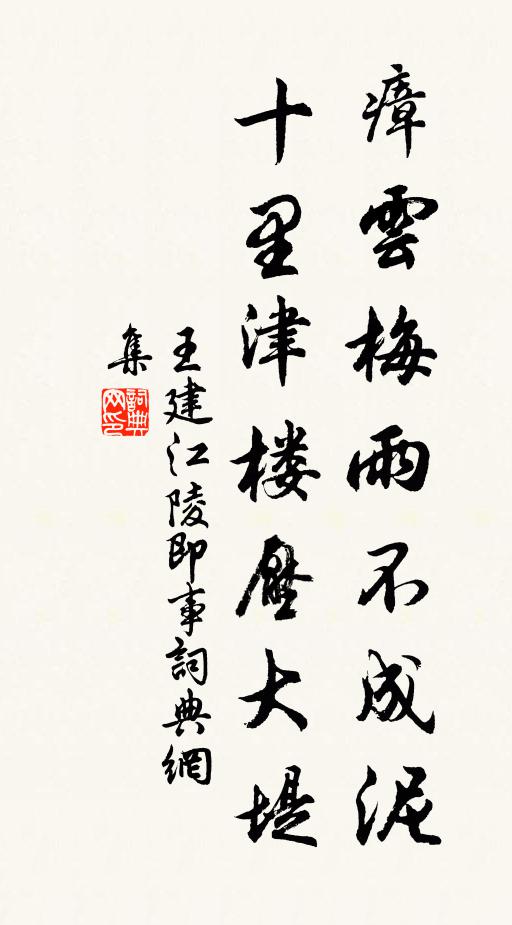 瘴雲梅雨不成泥
十里津楼壓大堤
王建江陵即事詞典網
集
詞典
网印